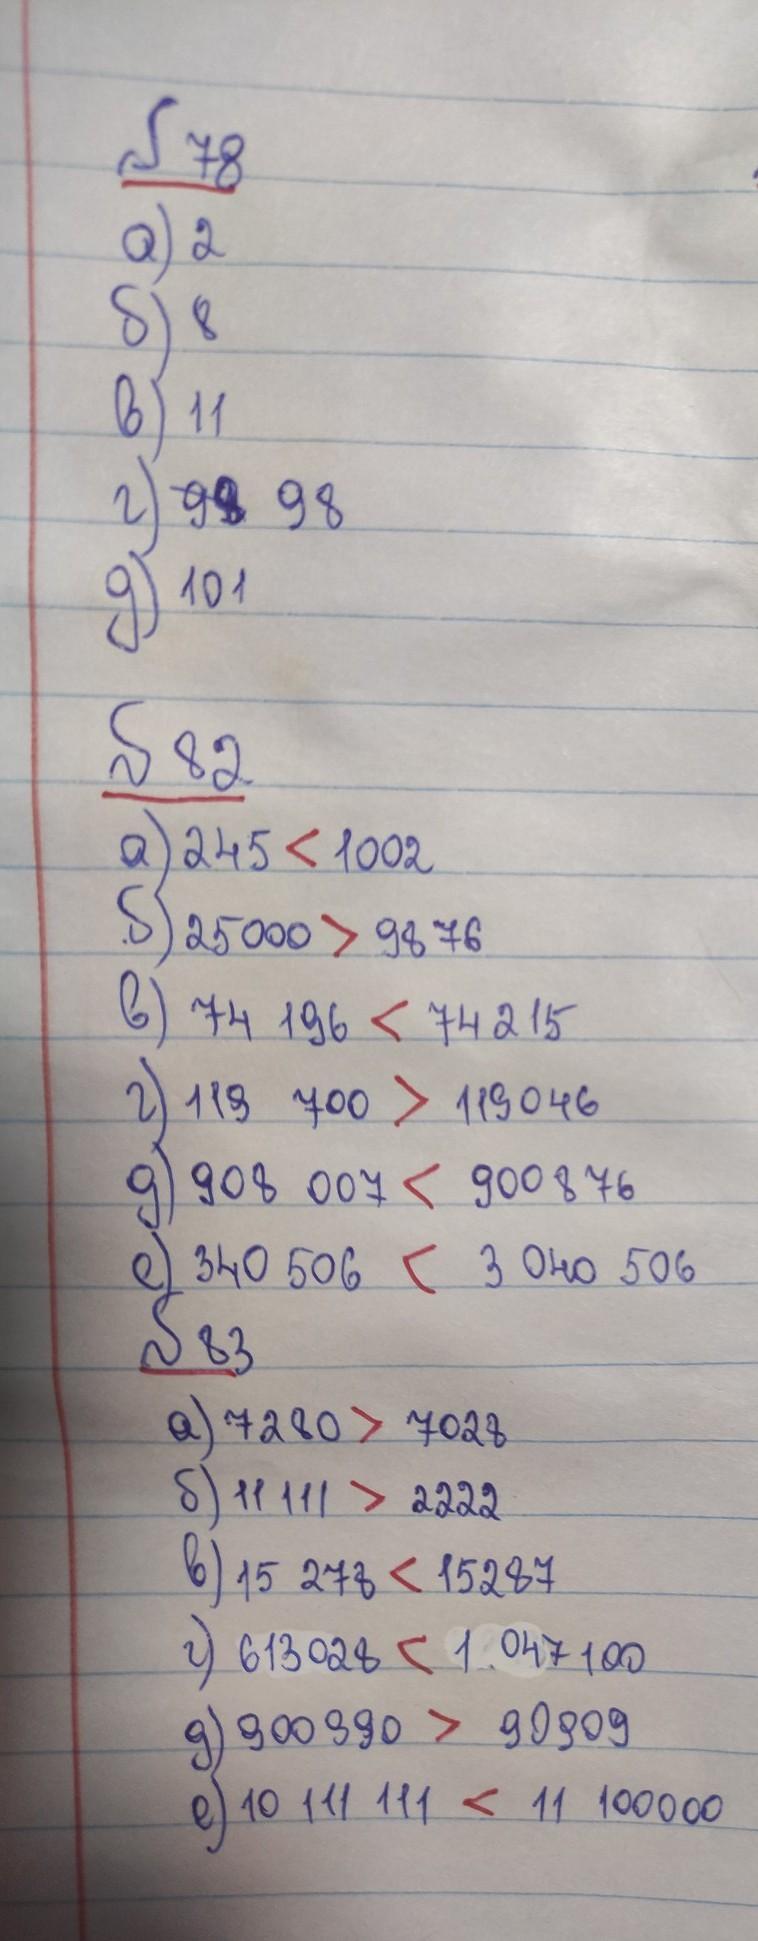 № 78
а) 2
б) 8
в) 11
г) 98 98
д) 101
№ 82
а) 245 < 1002
б) 25000 > 9876
в) 74 196 < 74215
г) 119 700 > 119046
д) 908 007 < 900876
е) 340 506 < 3 040 506
№ 83
а) 7280 > 7028
б) 11 111 > 2222
в) 15 278 < 15287
г) 613028 < 1.047100
д) 900990 > 90909
е) 10 111 111 < 11 100000